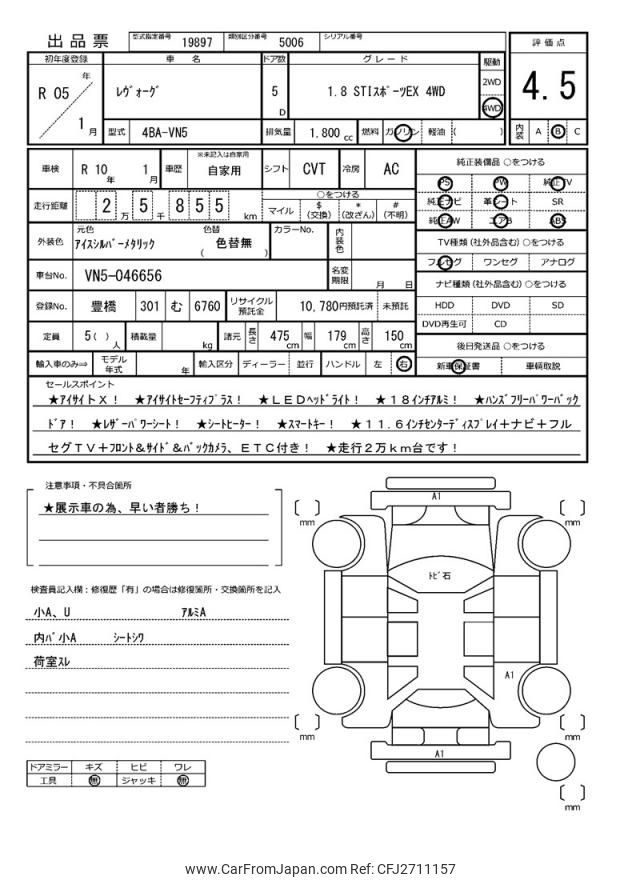 出品票 型式指定番号 19897 類別区分番号 5006 シリアル番号
評価点
4.5
初年度登録 車名 ドア数 グレード 駆動
R 05 年 1 月
ﾚｳﾞｫｰｸﾞ 5 D 1.8 STIｽﾎﾟｰﾂEX 4WD
2WD
4WD
型式 4BA-VN5 排気量 1,800 cc 燃料 ガソリン 軽油 ( )
内装 A B C
車検 R 10 年 1 月 車歴 ※未記入は自家用 自家用 シフト CVT 冷房 AC
純正装備品 ○をつける
PS PW 純正TV
純正ナビ 革シート SR
純正AW エアB ABS
走行距離 2 万 5 千 8 5 5 km
○をつける
マイル $(交換) *(改ざん) #(不明)
外装色 元色 ｱｲｽｼﾙﾊﾞｰﾒﾀﾘｯｸ 色替 ( 色替無 ) カラーNo. 内装色
TV種類 (社外品含む) ○をつける
フルセグ ワンセグ アナログ
車台No. VN5-046656 名変期限 月 日
ナビ種類 (社外品含む) ○をつける
HDD DVD SD
DVD再生可 CD
登録No. 豊橋 301 む 6760 リサイクル預託金 10,780円預託済 未預託
定員 5( )人 積載量 kg 諸元 長さ 475 cm 幅 179 cm 高さ 150 cm
後日発送品 ○をつける
新車保証書 車輌取説
輸入車のみ⇒ モデル年式 年 輸入区分 ディーラー 並行 ハンドル 左 右
セールスポイント
★ｱｲｻｲﾄX！ ★ｱｲｻｲﾄｾｰﾌﾃｨﾌﾟﾗｽ！ ★ＬＥＤﾍｯﾄﾞﾗｲﾄ！ ★１８ｲﾝﾁｱﾙﾐ！ ★ﾊﾝｽﾞﾌﾘｰﾊﾟﾜｰﾊﾞｯｸ
ﾄﾞｱ！ ★ﾚｻﾞｰﾊﾟﾜｰｼｰﾄ！ ★ｼｰﾄﾋｰﾀｰ！ ★ｽﾏｰﾄｷｰ！ ★１１.６ｲﾝﾁｾﾝﾀｰﾃﾞｨｽﾌﾟﾚｲ＋ナビ＋フル
セグＴＶ＋ﾌﾛﾝﾄ＆ｻｲﾄﾞ＆ﾊﾞｯｸｶﾒﾗ、ＥＴＣ付き！ ★走行２万ｋｍ台です！
注意事項・不具合箇所
★展示車の為、早い者勝ち！
検査員記入欄：修復歴「有」の場合は修復箇所・交換箇所を記入
小A、U ｱﾙﾐA
内ﾊﾞ小A ｼｰﾄｼﾜ
荷室ｽﾚ
ドアミラー キズ ヒビ ワレ
工具 無 ジャッキ 無
A1
mm mm
ﾄﾋﾞ石
A1
mm mm
A1
mm
www.CarFromJapan.com Ref: CFJ2711157